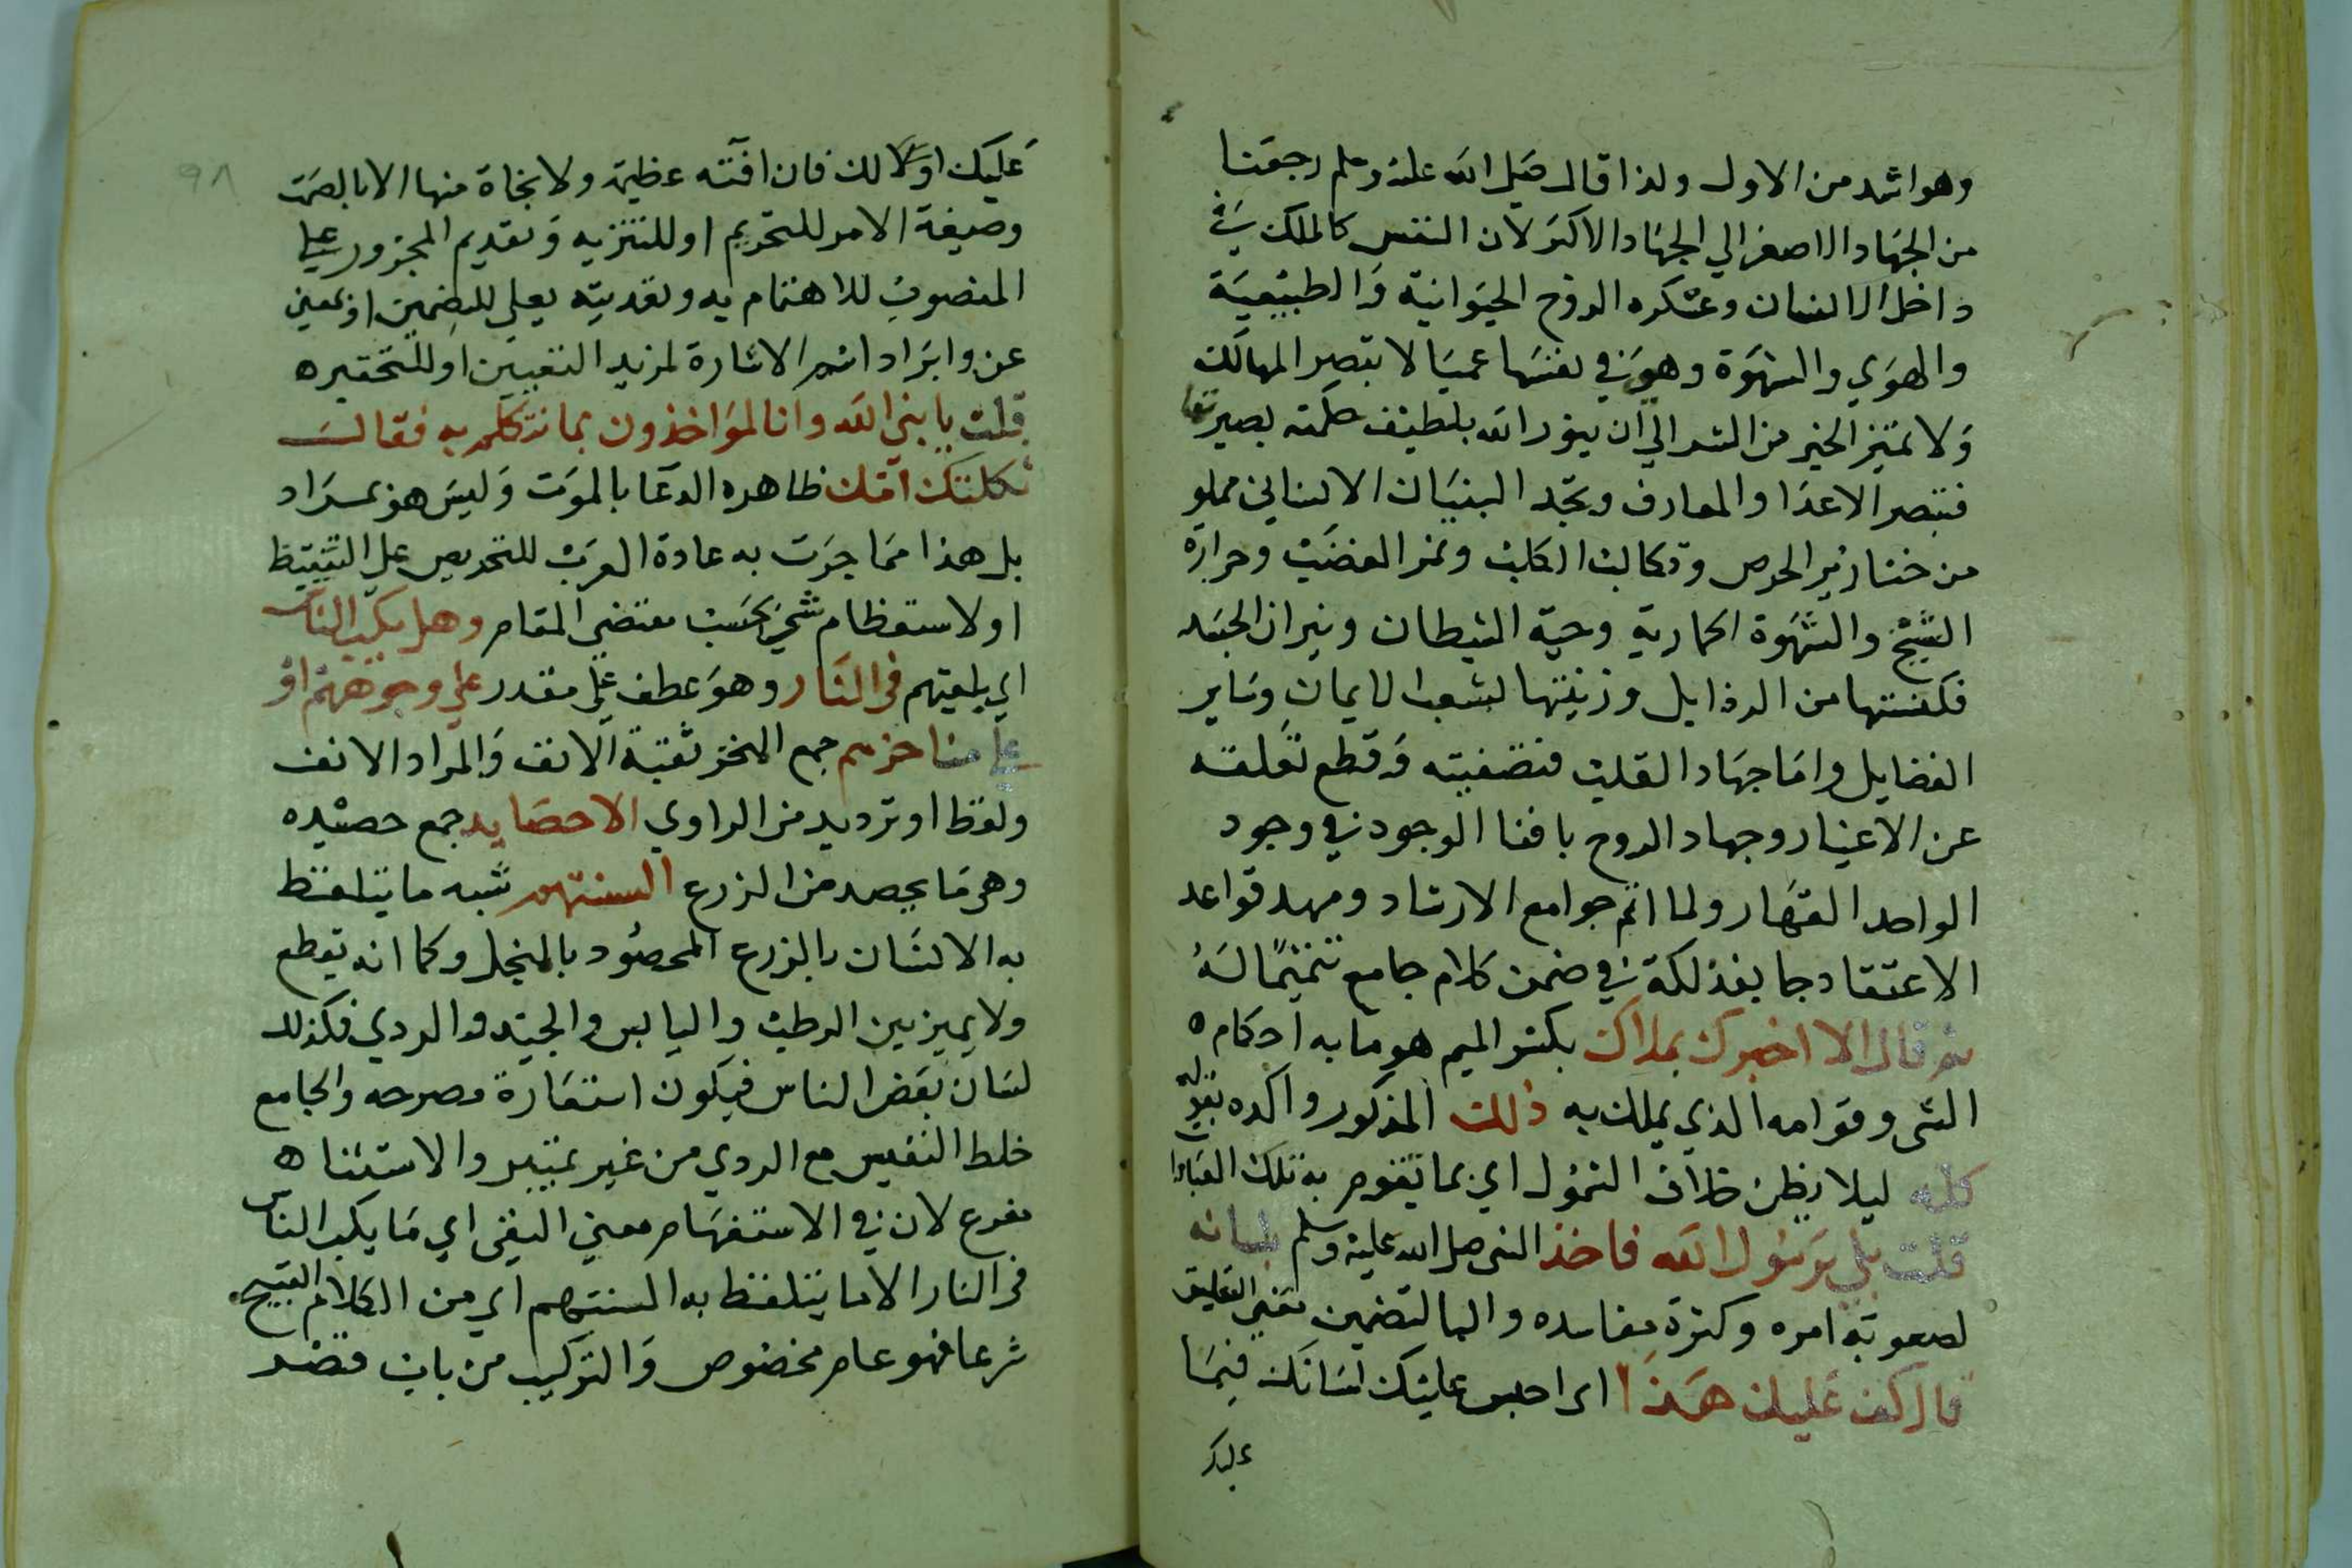 وهو اشد من الاول ولذا قال صلى الله عليه وسلم رجعنا
من الجهاد الاصغر الي الجهاد الاكبر لان النفس كالملك في
داخل الانسان وعسكره الروح الحيوانية والطبيعية
والهوي والشهوة وهو في نفسها عميا لا تبصر المهالك
ولا تميز الخير من الشر الي ان ينور الله بلطيف حكمته بصيرتها
فتبصر الاعدا والمعارف وتجد البنيان الانساني مملو
من خنازير الحرص وتكالب الكلب ونمر الغضب وحرارة
الشبح والشهوة الحمارية وحية الشيطان ونيران الحسد
فكنستها من الرذايل وزينتها بشعب الايمان وساير
الفضايل واما جهاد القلب فتصفيته وقطع تعلقه
عن الاغيار وجهاد الروح بافنا الوجود في وجود
الواحد القهار ولما اتم جوامع الارشاد ومهد قواعد
الاعتقاد جا بفذلكة في ضمن كلام جامع تتميما له
ثم قال الا اخبرك بملاك بكسر الميم هو ما به احكام
الشي وقوامه الذي يملك به ذلك المذكور واكده بقوله
كله ليلا يظن خلاف الشمول اي بما تقوم به تلك العبادا
قلت بلي يرسول الله فاخذ النبي صلى الله عليه وسلم بلسانه
لصعوبة امره وكثرة مفاسده والبا لتضمين معني التعليق
قال كف عليك هذا اي احبس عليك لسانك فيما
عليك
٩٨
عليك اولا لك فان افته عظيمة ولا نجاة منها الا بالصمت
وصيغة الامر للتحريم او للتنزيه وتقديم المجرور علي
المنصوب للاهتمام به وتعديته بعلي للتضمين او بمعني
عن وايراد اسم الاشارة لمزيد التعيين او للتحقير
قلت يا نبي الله وانا لمواخذون بما نتكلم به فقال
ثكلتك امك ظاهره الدعا بالموت وليس هو بمراد
بل هذا مما جرت به عادة العرب للتحريص علي التيقظ
او لاستعظام شي بحسب مقتضي المقام وهل يكب الناس
اي يلقيهم في النار وهو عطف علي مقدر علي وجوههم او
علي مناخرهم جمع المنخر ثقبة الانف والمراد الانف
ولفظ او ترديد من الراوي الا حصايد جمع حصيده
وهي ما يحصد من الزرع السنتهم شبه ما يتلفظ
به الانسان بالزرع المحصود بالمنجل وكما انه يقطع
ولا يميز بين الرطب واليابس والجيد والردي فكذلك
لسان بعض الناس فيكون استعارة مصرحه والجامع
خلط النفيس مع الردي من غير تمييز والاستثنا
مفرع لان في الاستفهام معني النفي اي ما يكب الناس
في النار الا ما يتلفظ به السنتهم اي من الكلام القبيح
شرعا فهو عام مخصوص والتركيب من باب قصر